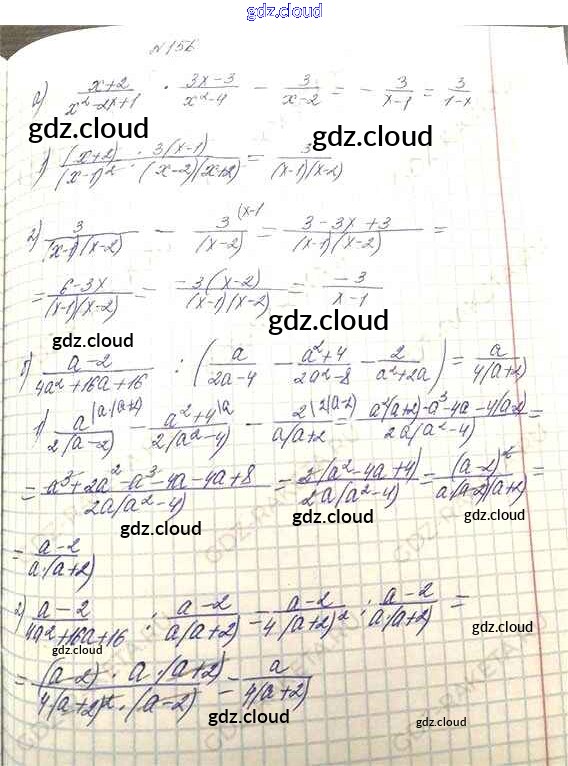 gdz.cloud
N 156
а) (x+2)/(x²-2x+1) · (3x-3)/(x²-4) - 3/(x-2) = - 3/(x-1) = 3/(1-x)
gdz.cloud gdz.cloud
1) (x+2) · 3(x-1) / (x-1)² · (x-2)(x+2) = 3/((x-1)(x-2))
2) 3/((x-1)(x-2)) - 3/(x-2) (x-1 = (3-3x+3)/((x-1)(x-2)) =
= (6-3x)/((x-1)(x-2)) - -3(x-2)/((x-1)(x-2)) = -3/(x-1)
gdz.cloud
gdz.cloud
б) (a-2)/(4a²+16a+16) : (a/(2a-4) - (a²+4)/(2a²-8) - 2/(a²+2a)) = a/(4(a+2))
gdz.cloud gdz.cloud
1) a/(2(a-2)) (a·(a+2) - (a²+4)/(2(a²-4)) (a - 2/(a(a+2)) (2(a-2) = (a²(a+2)-a³-4a-4(a-2))/(2a(a²-4)) =
= (a³+2a²-a³-4a-4a+8)/(2a(a²-4)) = 2(a²-4a+4)/(2a(a²-4)) = (a-2)²/(a(a-2)(a+2)) =
gdz.cloud gdz.cloud
= (a-2)/(a·(a+2))
2) (a-2)/(4a²+16a+16) : (a-2)/(a(a+2)) = (a-2)/(4(a+2)²) : (a-2)/(a·(a+2)) =
gdz.cloud gdz.cloud
= (a-2) · a·(a+2) / 4(a+2)² · (a-2) = a/(4(a+2))
gdz.cloud
gdz.cloud